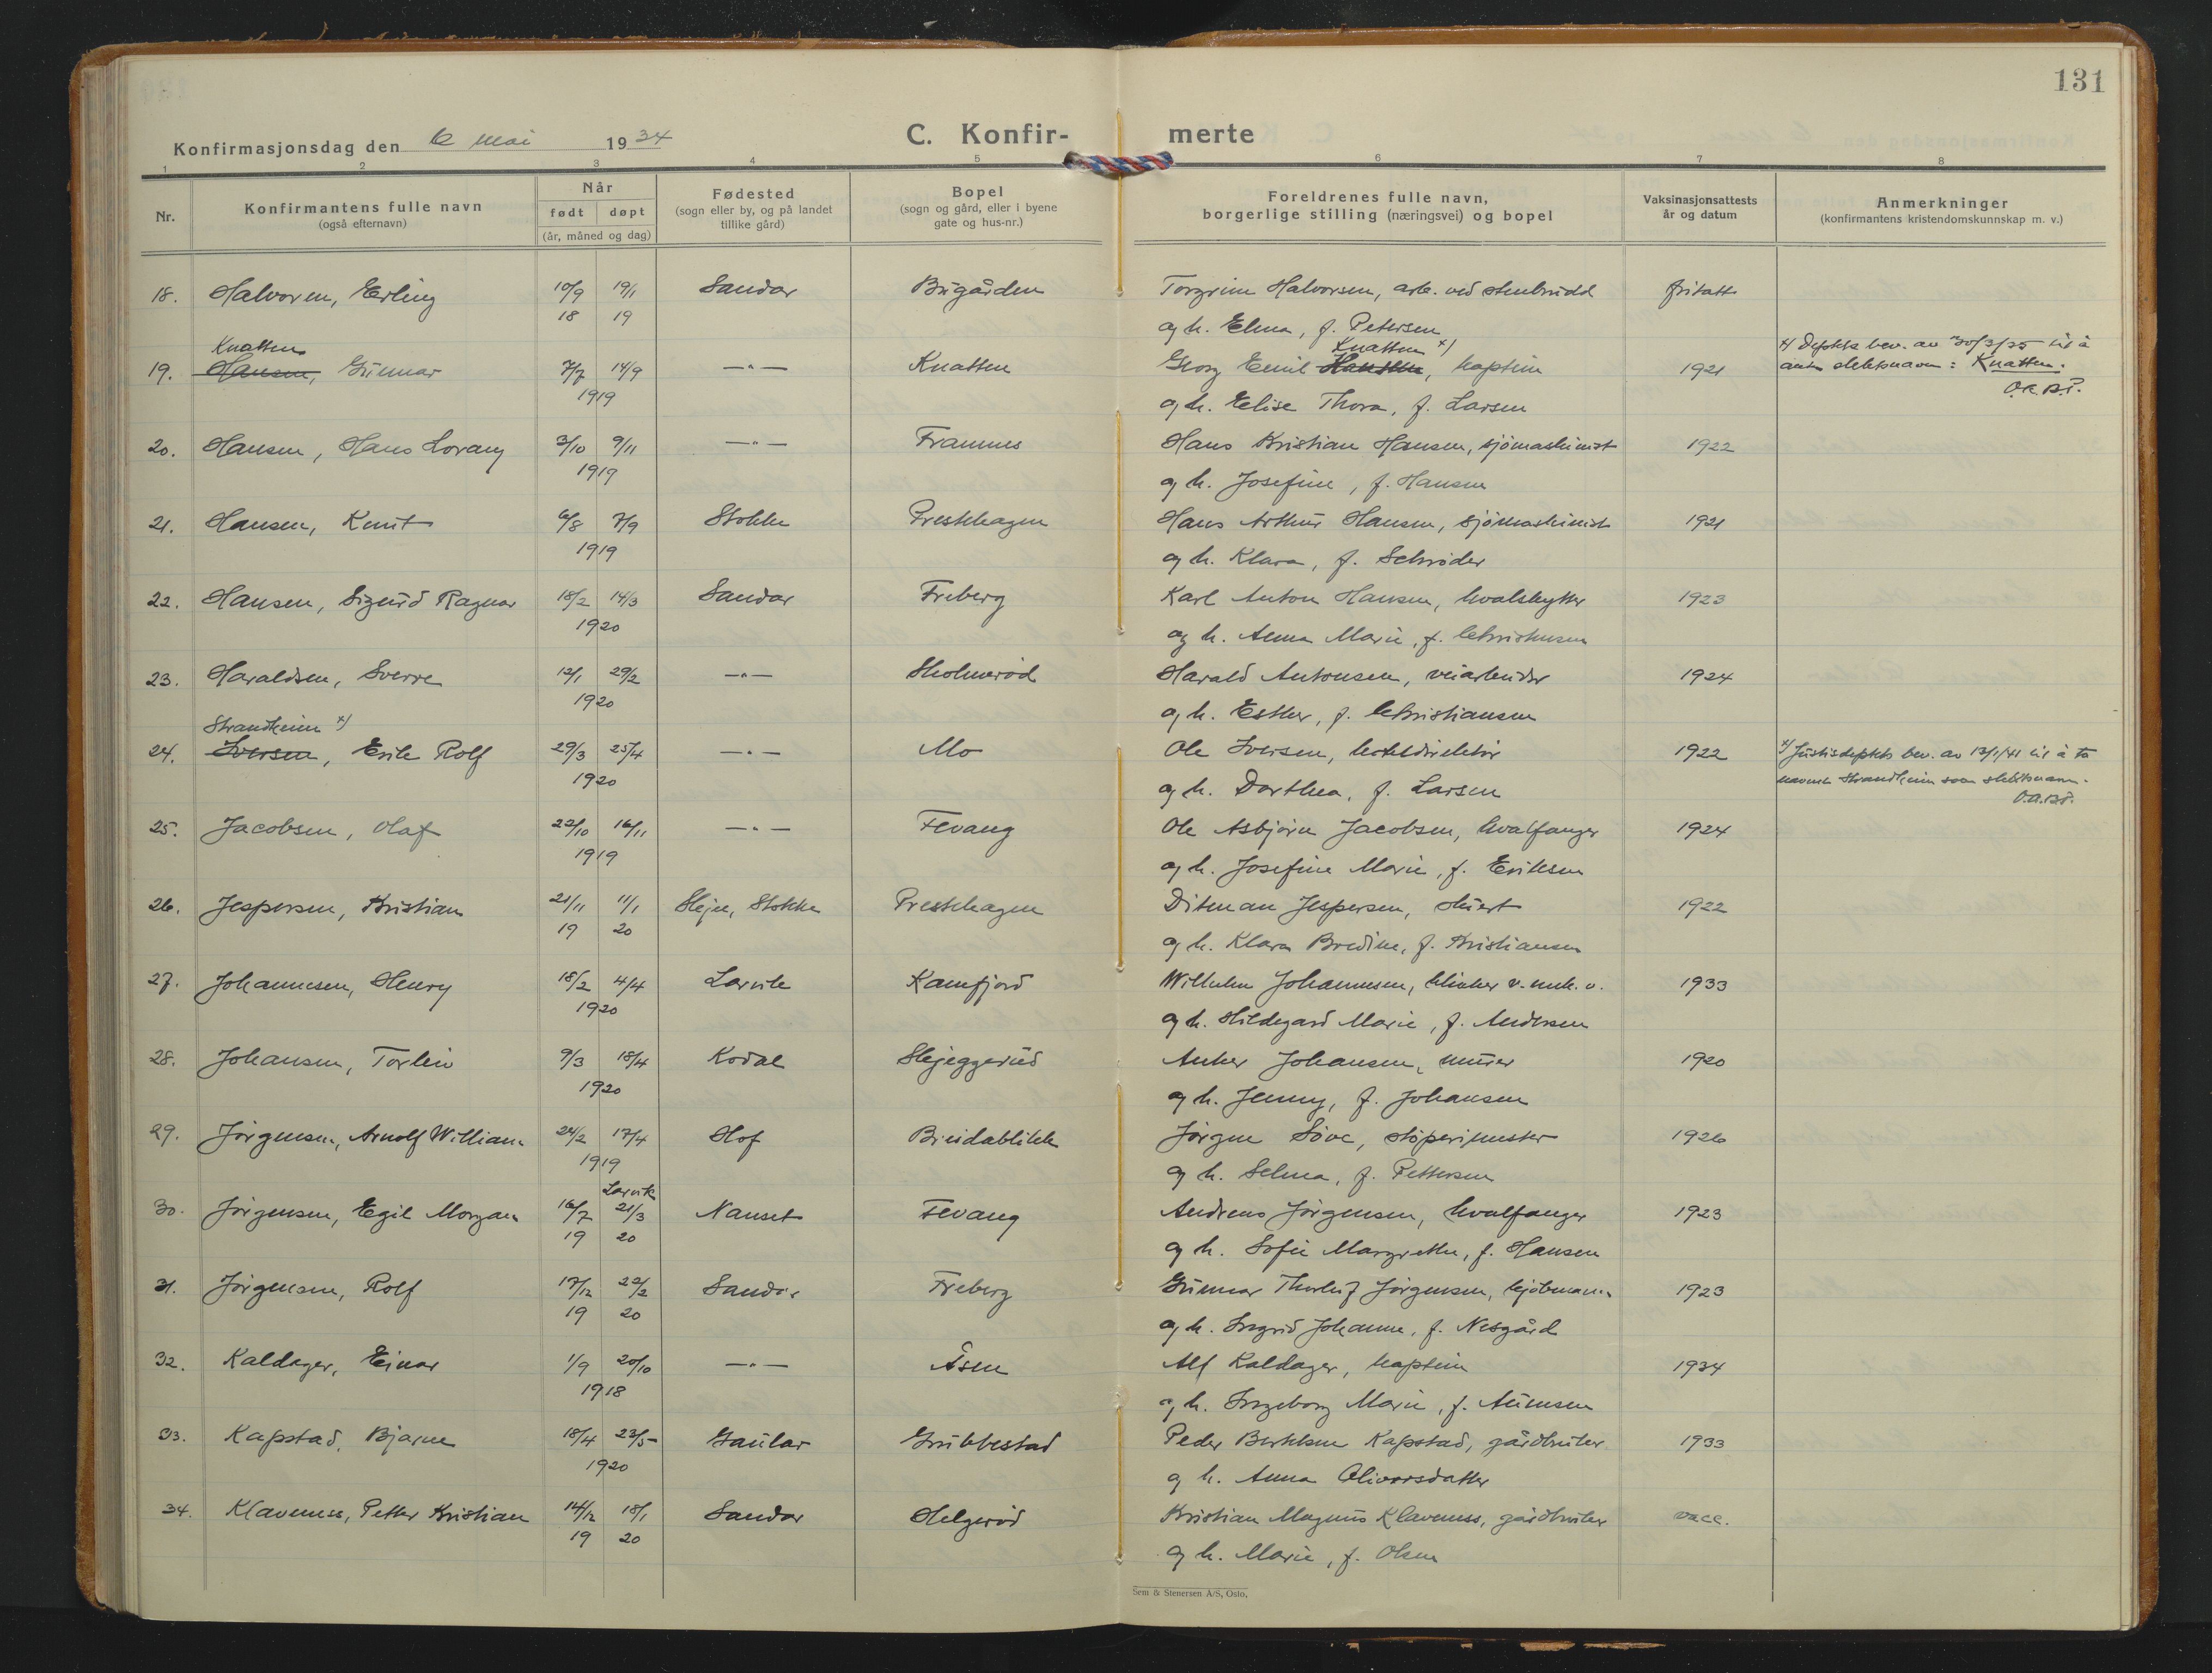 131
Konfirmasjonsdag den 6 mai 1934
C. Konfir- merte
1 2 3 4 5 6 7 8
Nr.
Konfirmantens fulle navn
(også efternavn)
Når
født døpt
(år, måned og dag)
Fødested
(sogn eller by, og på landet
tillike gård)
Bopel
(sogn og gård, eller i byene
gate og hus-nr.)
Foreldrenes fulle navn,
borgerlige stilling (næringsvei) og bopel
Vaksinasjonsattests
år og datum
Anmerkninger
(konfirmantens kristendomskunnskap m. v.)
18. Halvorsen, Erling 10/9 19/1 Sandar Bugården Torgrim Halvorsen, arb. ved stenbrudd fritatt
18 19 og h. Elma, f. Petersen
Knatten Knatten x)
19. Hansen, Gunnar 7/7 14/9 —"— Knatten Georg Emil Hansen, kaptein 1921
1919 og h. Elise Thora, f. Larsen
x) Depkts bev. av 30/3/35 til å
anta slektsnavn: Knatten.
20. Hansen, Hans Lorang 3/10 9/11 —"— Framnes Hans Kristian Hansen, sjømaskinist 1922
1919 og h. Josefine, f. Hansen
21. Hansen, Knut 6/8 7/9 Stokke Prestehagen Hans Arthur Hansen, sjømaskinist 1921
1919 og h. Klara, f. Schrøder
22. Hansen, Sigurd Ragnar 18/2 14/3 Sandar Freberg Karl Anton Hansen, hvalskytter 1923
1920 og h. Anna Marie, f. Christensen
23. Haraldsen, Sverre 12/1 29/2 —"— Skolmerød Harald Antonsen, veiarbeider 1924
1920 og h. Esther, f. Christiansen
Strandheim x)
24. Iversen, Erik Rolf 29/3 25/4 —"— Mo Ole Iversen, hoteldirektør 1922
1920 og h. Dorthea, f. Larsen
x) Justisdepkts bev. av 13/1/41 til å ta
navnet Strandheim som slektsnavn.
25. Jacobsen, Olaf 22/10 16/11 —"— Fevang Ole Asbjørn Jacobsen, hvalfanger 1924
1919 og h. Josefine Marie, f. Eriksen
26. Jespersen, Kristian 21/11 11/1 Skjee, Stokke Prestehagen Ditman Jespersen, stuert 1922
19 20 og h. Klara Bredine, f. Kristiansen
27. Johannesen, Henry 18/2 4/4 Larvik Kamfjord Wilhelm Johannesen, klinker v. mek. v. 1933
1920 og h. Hildegard Marie, f. Andersen
28. Johansen, Torleiv 9/3 18/4 Kodal Skjeggerud Anker Johansen, murer 1920
1920 og h. Jenny, f. Johansen
29. Jørgensen, Arnolf William 24/2 17/4 Hof Breidablikk Jørgen Søve, støperimester 1926
1919 og h. Selma, f. Pettersen
Larvik
30. Jørgensen, Egil Morgan 16/7 21/3 Nanset Fevang Andreas Jørgensen, hvalfanger 1923
19 20 og h. Sofie Margrethe, f. Hansen
31. Jørgensen, Rolf 17/12 22/2 Sandar Freberg Gunnar Thorleif Jørgensen, kjøbmann 1923
19 20 og h. Ingrid Johanne, f. Nesgård
32. Kaldager, Einar 1/9 20/10 —"— Åsen Alf Kaldager, kaptein 1934
1918 og h. Ingeborg Marie, f. Aunesen
33. Kapstad, Bjarne 18/4 23/5 Gaular Grubbestad Peder Berthsen Kapstad, gårdbruker 1933
1920 og h. Anna Olivarsdatter
34. Klavenes, Petter Kristian 14/12 18/1 Sandar Helgerød Kristian Magnus Klavenes, gårdbruker vacc.
19 20 og h. Marie, f. Olsen
Sem & Stenersen A/S, Oslo.